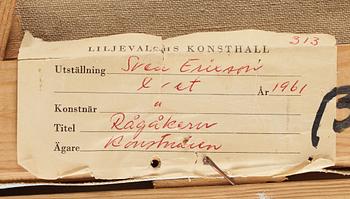 313
LILJEVALCHS KONSTHALL
Utställning Sven Ericson
X-et År 1961
Konstnär "
Titel Rågåkern
Ägare Konstnären